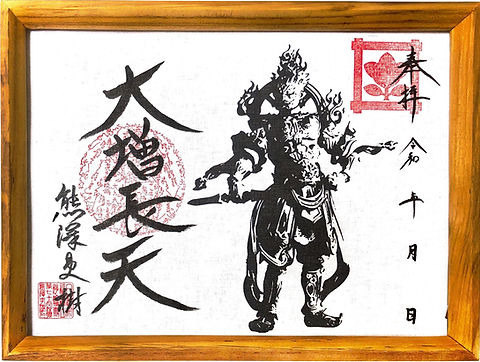 奉拝
令和 年 月 日
大増長天
熊澤史樹